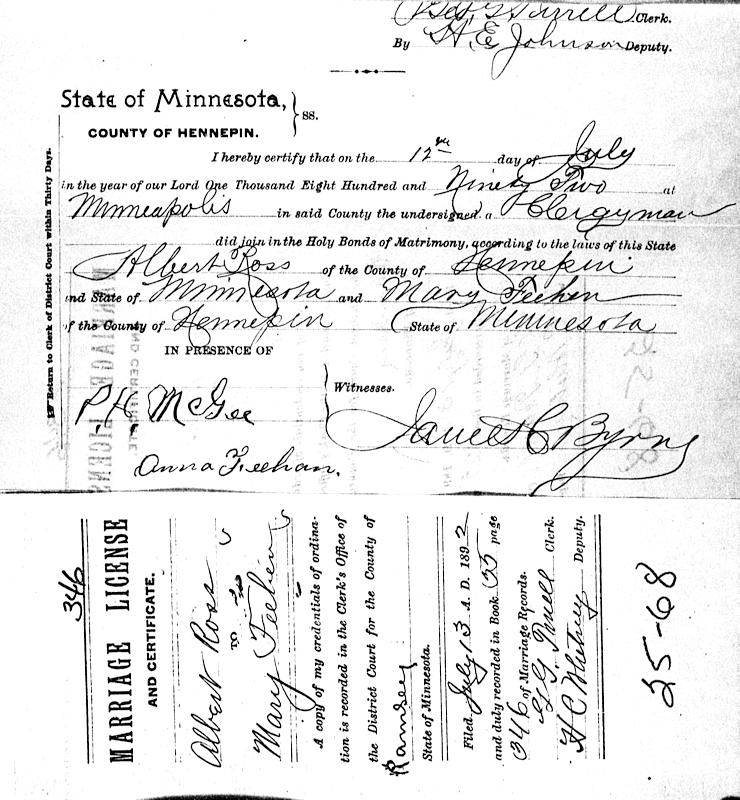 Clerk.
By H. E. Johnson Deputy.
State of Minnesota, } ss.
COUNTY OF HENNEPIN.
I hereby certify that on the 12th day of July
in the year of our Lord One Thousand Eight Hundred and Ninety Two at
Minneapolis in said County the undersigned a Clergyman
did join in the Holy Bonds of Matrimony, according to the laws of this State
Albert Ross of the County of Hennepin
and State of Minnesota and Mary Feehen
of the County of Hennepin State of Minnesota
IN PRESENCE OF
P. H. McGee } Witnesses.
James C Byrne
Anna Feehan.
Return to Clerk of District Court within Thirty Days.
346
MARRIAGE LICENSE
AND CERTIFICATE.
Albert Ross
TO
Mary Feehen
A copy of my credentials of ordina-
tion is recorded in the Clerk's Office of
the District Court for the County of
Ramsey
State of Minnesota.
Filed July 13 A. D. 1892
and duly recorded in Book 55 page
346 of Marriage Records.
Clerk.
H C Whitney Deputy.
25-68